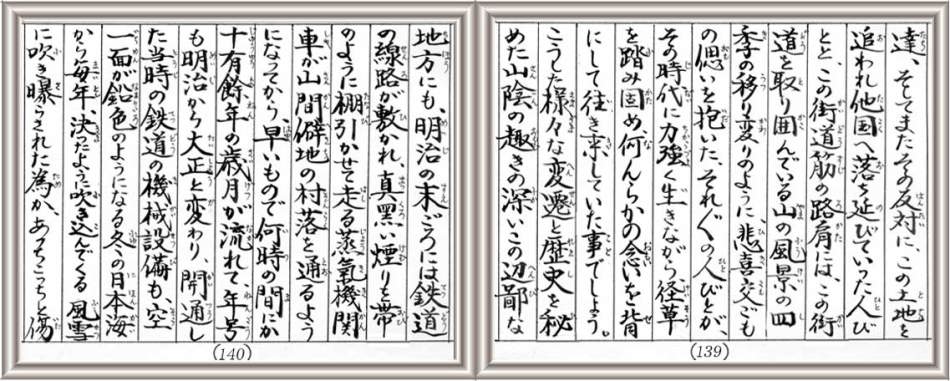 達、そしてまたその反対に、この土地を
追われ他国へ落ち延びていった人び
とと、この街道筋の路肩には、この街
道を取り囲んでいる山の風景の四
季の移り変りのように、悲喜交ごも
の偲いを抱いた、それぐの人びとが、
その時代に力強く生きながら径草
を踏み固め、何んらかの念いを背
にして往き来していた事でしょう。
こうした様々な変遷と歴史を秘
めた山陰の趣きの深いこの辺鄙な
(139)
地方にも、明治の末ごろには鉄道
の線路が敷かれ、真黒い煙りを帯
のように棚引かせて走る蒸気機関
車が山間僻地の村落を通るよう
になってから、早いもので何時の間にか
十有餘年の歳月が流れて、年号
も明治から大正と変わり、開通し
た当時の鉄道の機械設備も、空
一面が鉛色のようになる冬の日本海
から毎年決ったように吹き込んでくる風雪
に吹き曝らされた為か、あっちこっちと傷
(140)